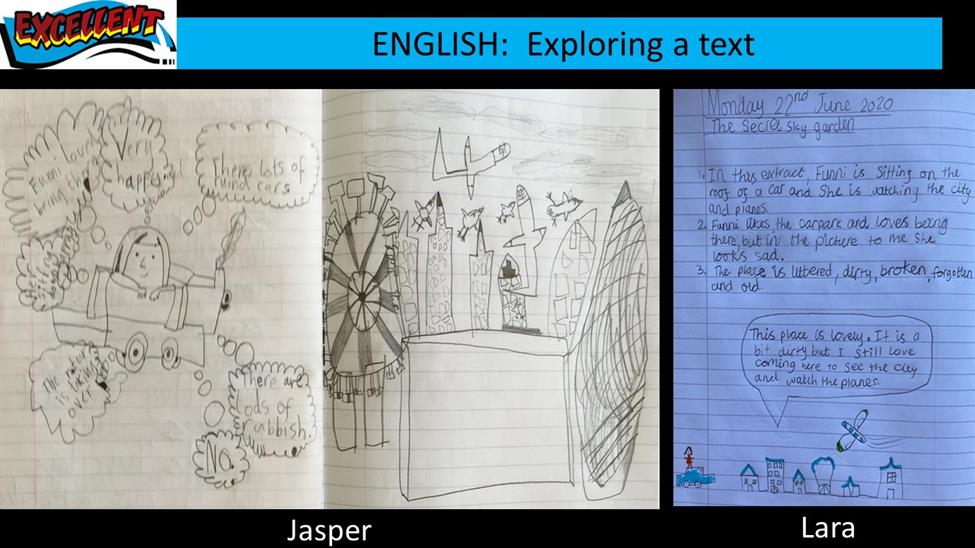 EXCELLENT
ENGLISH: Exploring a text
Funni loves
being there
Very
happy
There lots of
wind cars
There are
ods of
rubbish.
No.
Monday 22nd June 2020
The Secret Sky garden
1. In this extract, Funni is Sitting on the
roof of a car and She is watching the city
and planes.
2. Funni likes the carpark and loves being
there, but in the picture to me She
looks sad.
3. The place is littered, dirty, broken, forgotten
and old.
This place is lovely. It is a
bit dirty but I still love
coming here to see the city
and watch the planes.
Jasper
Lara